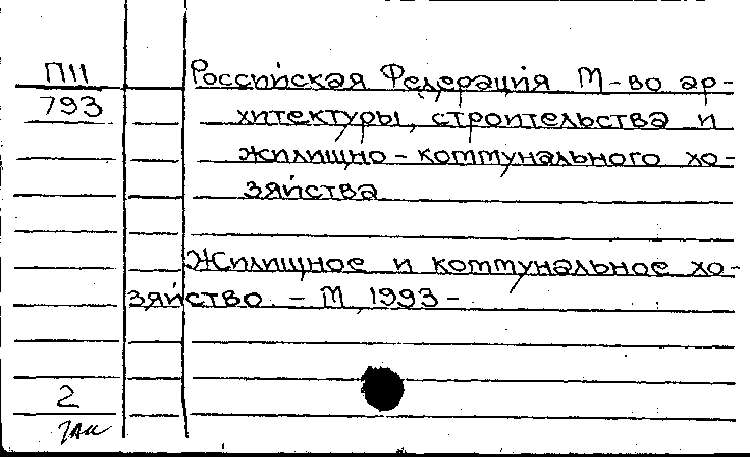 П11
793
Российская Федерация М-во ар-
хитектуры, строительства и
жилищно-коммунального хо-
зяйства
Жилищное и коммунальное хо-
зяйство. - М, 1993 -
2